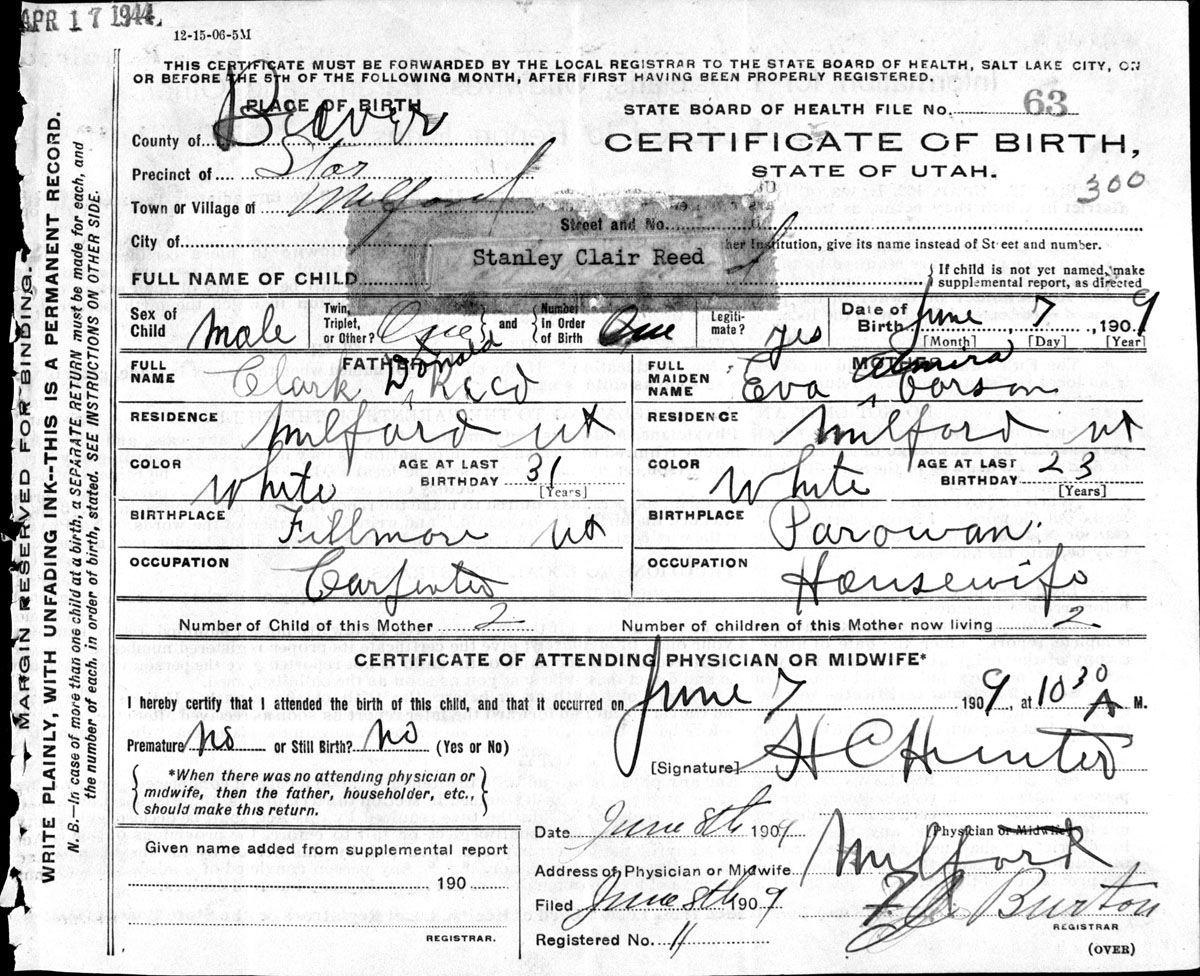 APR 17 1944
12-15-06-5M
THIS CERTIFICATE MUST BE FORWARDED BY THE LOCAL REGISTRAR TO THE STATE BOARD OF HEALTH, SALT LAKE CITY, ON
OR BEFORE THE 5TH OF THE FOLLOWING MONTH, AFTER FIRST HAVING BEEN PROPERLY REGISTERED.
PLACE OF BIRTH
STATE BOARD OF HEALTH FILE No. 63
County of Beaver
CERTIFICATE OF BIRTH,
Precinct of Star
STATE OF UTAH.
300
Town or Village of Milford
Street and No.
City of
her Institution, give its name instead of Street and number.
Stanley Clair Reed
FULL NAME OF CHILD
{ If child is not yet named, make
supplemental report, as directed
Sex of Child Male
Twin, Triplet, or Other? One } and { Number in Order of Birth One
Legiti-mate? yes
Date of Birth June 7, 1909
[Month] [Day] [Year]
FATHER
FULL NAME Clark Donald Reed
MOTHER
FULL MAIDEN NAME Eva Elmira Corson
RESIDENCE Milford ut
RESIDENCE Milford ut
COLOR White AGE AT LAST BIRTHDAY 31 [Years]
COLOR White AGE AT LAST BIRTHDAY 23 [Years]
BIRTHPLACE Fillmore ut
BIRTHPLACE Parowan.
OCCUPATION Carpenter
OCCUPATION Housewife
Number of Child of this Mother 2
Number of children of this Mother now living 2
CERTIFICATE OF ATTENDING PHYSICIAN OR MIDWIFE*
I hereby certify that I attended the birth of this child, and that it occurred on June 7 1909, at 10 30 A M.
Premature No or Still Birth? No (Yes or No)
[Signature] H C Hunter
{ *When there was no attending physician or
midwife, then the father, householder, etc.,
should make this return. }
Date June 8th 1909
Physician or Midwife
Given name added from supplemental report
190
REGISTRAR.
Address of Physician or Midwife Milford
Filed June 8th 1909
Burton
REGISTRAR
Registered No. 11
(OVER)
MARGIN RESERVED FOR BINDING.
WRITE PLAINLY, WITH UNFADING INK--THIS IS A PERMANENT RECORD.
N. B.—In case of more than one child at a birth, a SEPARATE RETURN must be made for each, and
the number of each, in order of birth, stated. SEE INSTRUCTIONS ON OTHER SIDE.